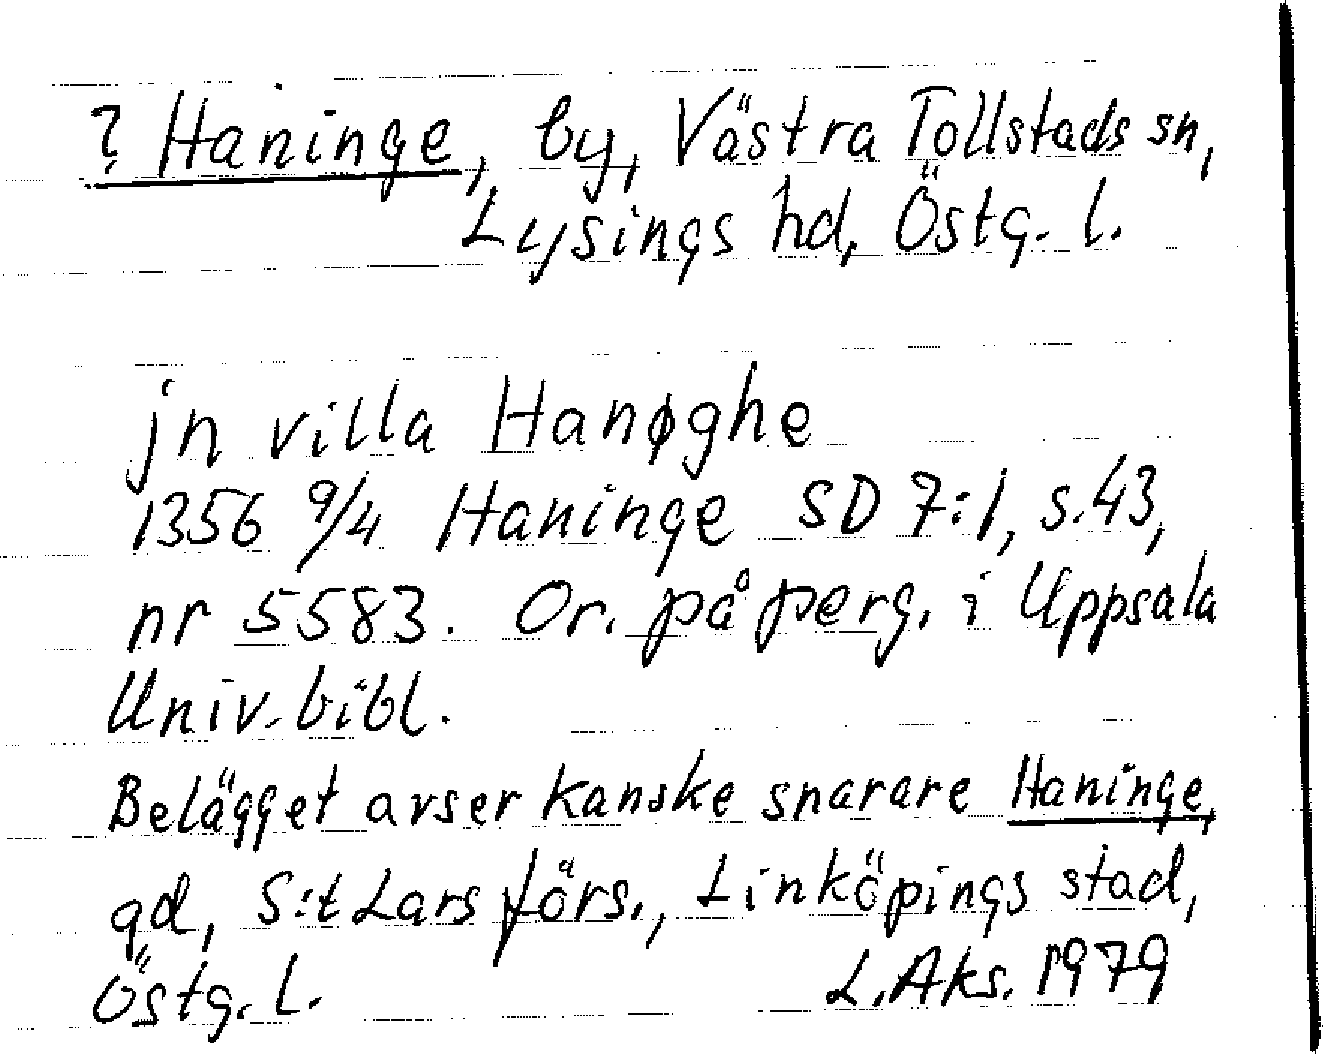 ? Haninge, by, Västra Tollstads sn,
Lysings hd, Östg. l.
jn villa Hanøghe
1356 9/4 Haninge SD 7:1, s. 43,
nr 5583. Or. på perg. i Uppsala
Univ. bibl.
Belägget avser kanske snarare Haninge,
gd, S:t Lars förs., Linköpings stad,
Östg. l. L. Aks. 1979